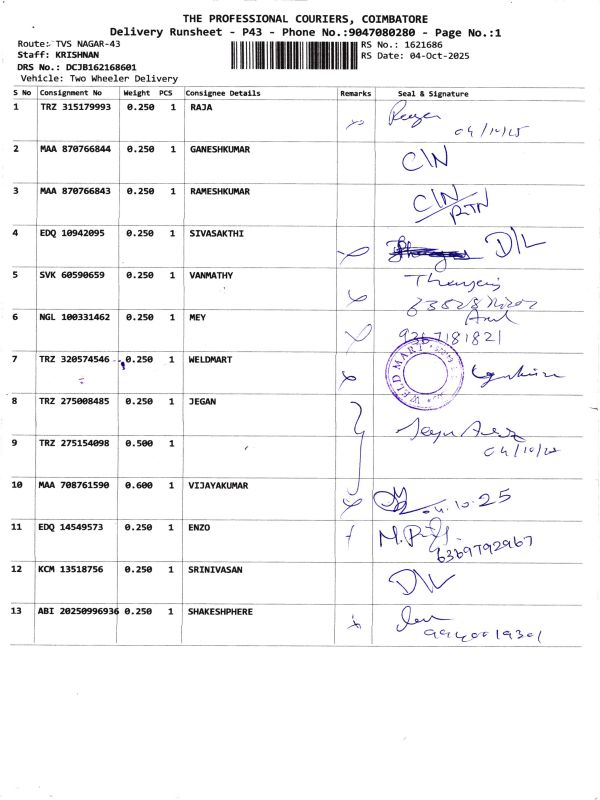 THE PROFESSIONAL COURIERS, COIMBATORE
Delivery Runsheet - P43 - Phone No.:9047080280 - Page No.:1
Route: TVS NAGAR-43
RS No.: 1621686
Staff: KRISHNAN
RS Date: 04-Oct-2025
DRS No.: DCJB162168601
Vehicle: Two Wheeler Delivery
S No Consignment No Weight PCS Consignee Details Remarks Seal & Signature
1 TRZ 315179993 0.250 1 RAJA
04/10/25
2 MAA 870766844 0.250 1 GANESHKUMAR C\N
3 MAA 870766843 0.250 1 RAMESHKUMAR C\N
RTN
4 EDQ 10942095 0.250 1 SIVASAKTHI D\L
5 SVK 60590659 0.250 1 VANMATHY
6 NGL 100331462 0.250 1 MEY
9367181821
7 TRZ 320574546 0.250 1 WELDMART WELD MART
8 TRZ 275008485 0.250 1 JEGAN
9 TRZ 275154098 0.500 1
04/10/25
10 MAA 708761590 0.600 1 VIJAYAKUMAR 04.10.25
11 EDQ 14549573 0.250 1 ENZO
6369792967
12 KCM 13518756 0.250 1 SRINIVASAN D\L
13 ABI 20250996936 0.250 1 SHAKESHPHERE
9940019301